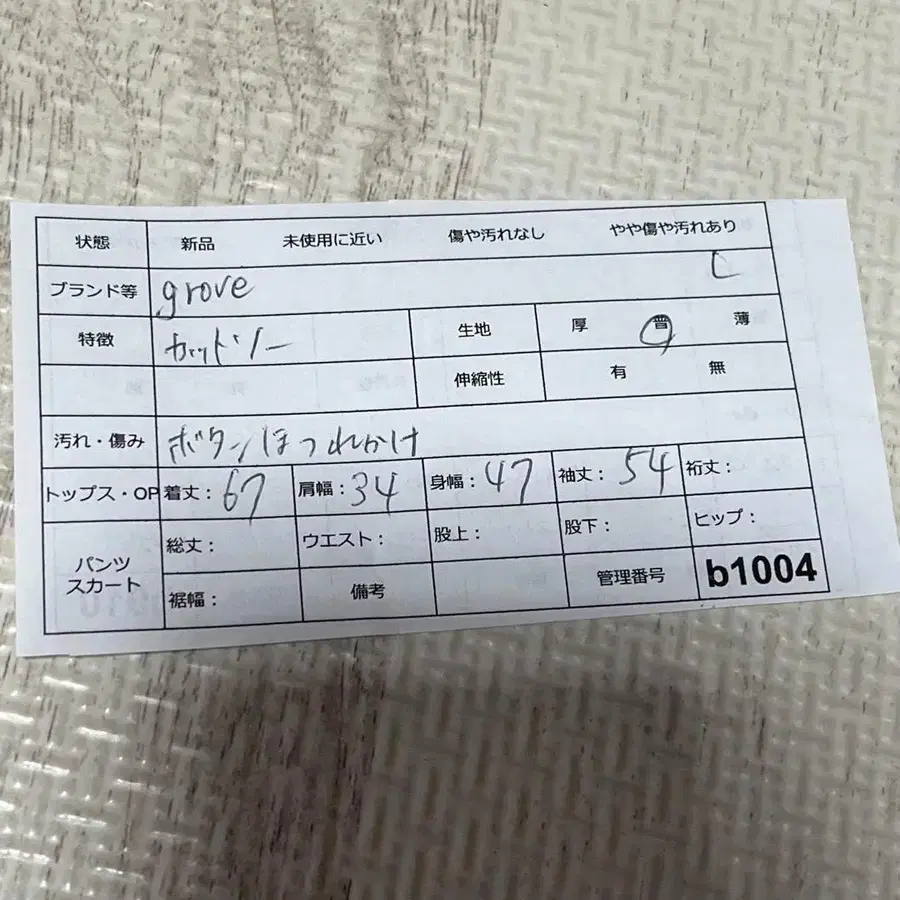 状態 新品 未使用に近い 傷や汚れなし やや傷や汚れあり
ブランド等 grove
特徴 カットソー 生地 厚 普 薄
伸縮性 有 無
汚れ・傷み ボタンほつれかけ
トップス・OP 着丈: 67 肩幅: 34 身幅: 47 袖丈: 54 裄丈:
パンツ スカート 総丈: ウエスト: 股上: 股下: ヒップ:
裾幅: 備考 管理番号 b1004